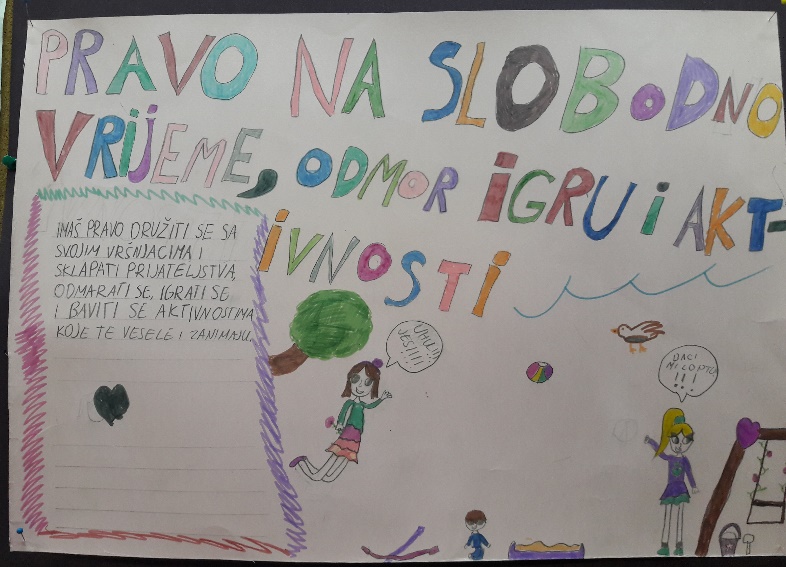 PRAVO NA SLOBODNO
VRIJEME, ODMOR IGRU I AKT-
IVNOSTI
IMAŠ PRAVO DRUŽITI SE SA
SVOJIM VRŠNJACIMA I
SKLAPATI PRIJATELJSTVA,
ODMARATI SE, IGRATI SE
I BAVITI SE AKTIVNOSTIMA
KOJE TE VESELE I ZANIMAJU.
UHU!!!
JES!!!!
DACI
MI LOPTU
!!!